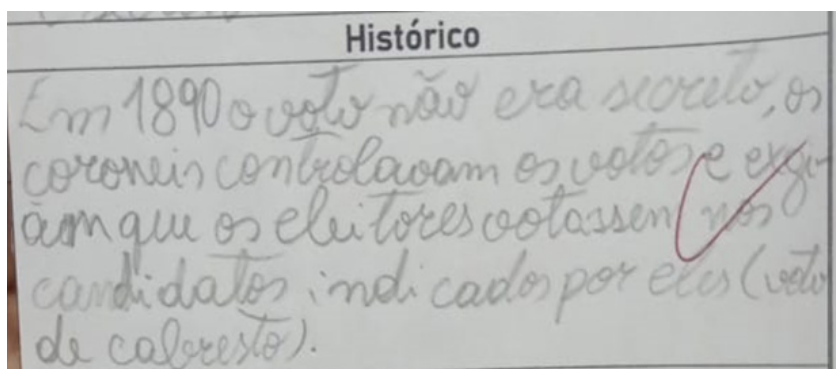 Histórico
Em 1890 o voto não era secreto, os
coroneis controlavam os votos e exgi-
am que os eleitores votassem nos
candidatos indicados por eles (voto
de cabresto).